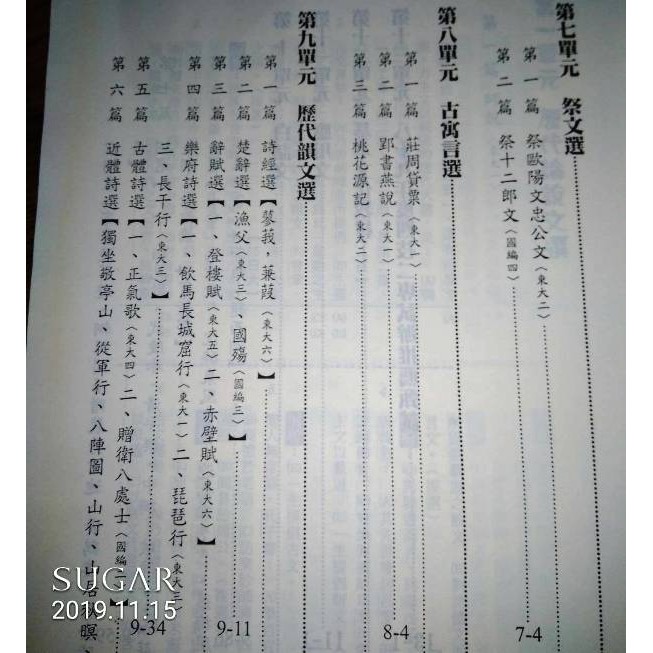 第七單元 祭文選
第一篇 祭歐陽文忠公文〈東大二〉
第二篇 祭十二郎文〈國編四〉
7-4
第八單元 古寓言選
第一篇 莊周貸粟〈東大一〉
第二篇 郢書燕說〈東大一〉
第三篇 桃花源記〈東大二〉
8-4
第九單元 歷代韻文選
第一篇 詩經選【蓼莪,蒹葭〈東大六〉】
第二篇 楚辭選【漁父〈東大三〉、國殤〈國編三〉】
9-11
第三篇 辭賦選【一、登樓賦〈東大五〉二、赤壁賦〈東大六〉】
第四篇 樂府詩選【一、飲馬長城窟行〈東大一〉二、琵琶行〈東大三〉
三、長干行〈東大三〉】
9-34
第五篇 古體詩選【一、正氣歌〈東大四〉二、贈衛八處士〈國編
第六篇 近體詩選【獨坐敬亭山、從軍行、八陣圖、山行、山居秋暝
SUGAR
2019.11.15